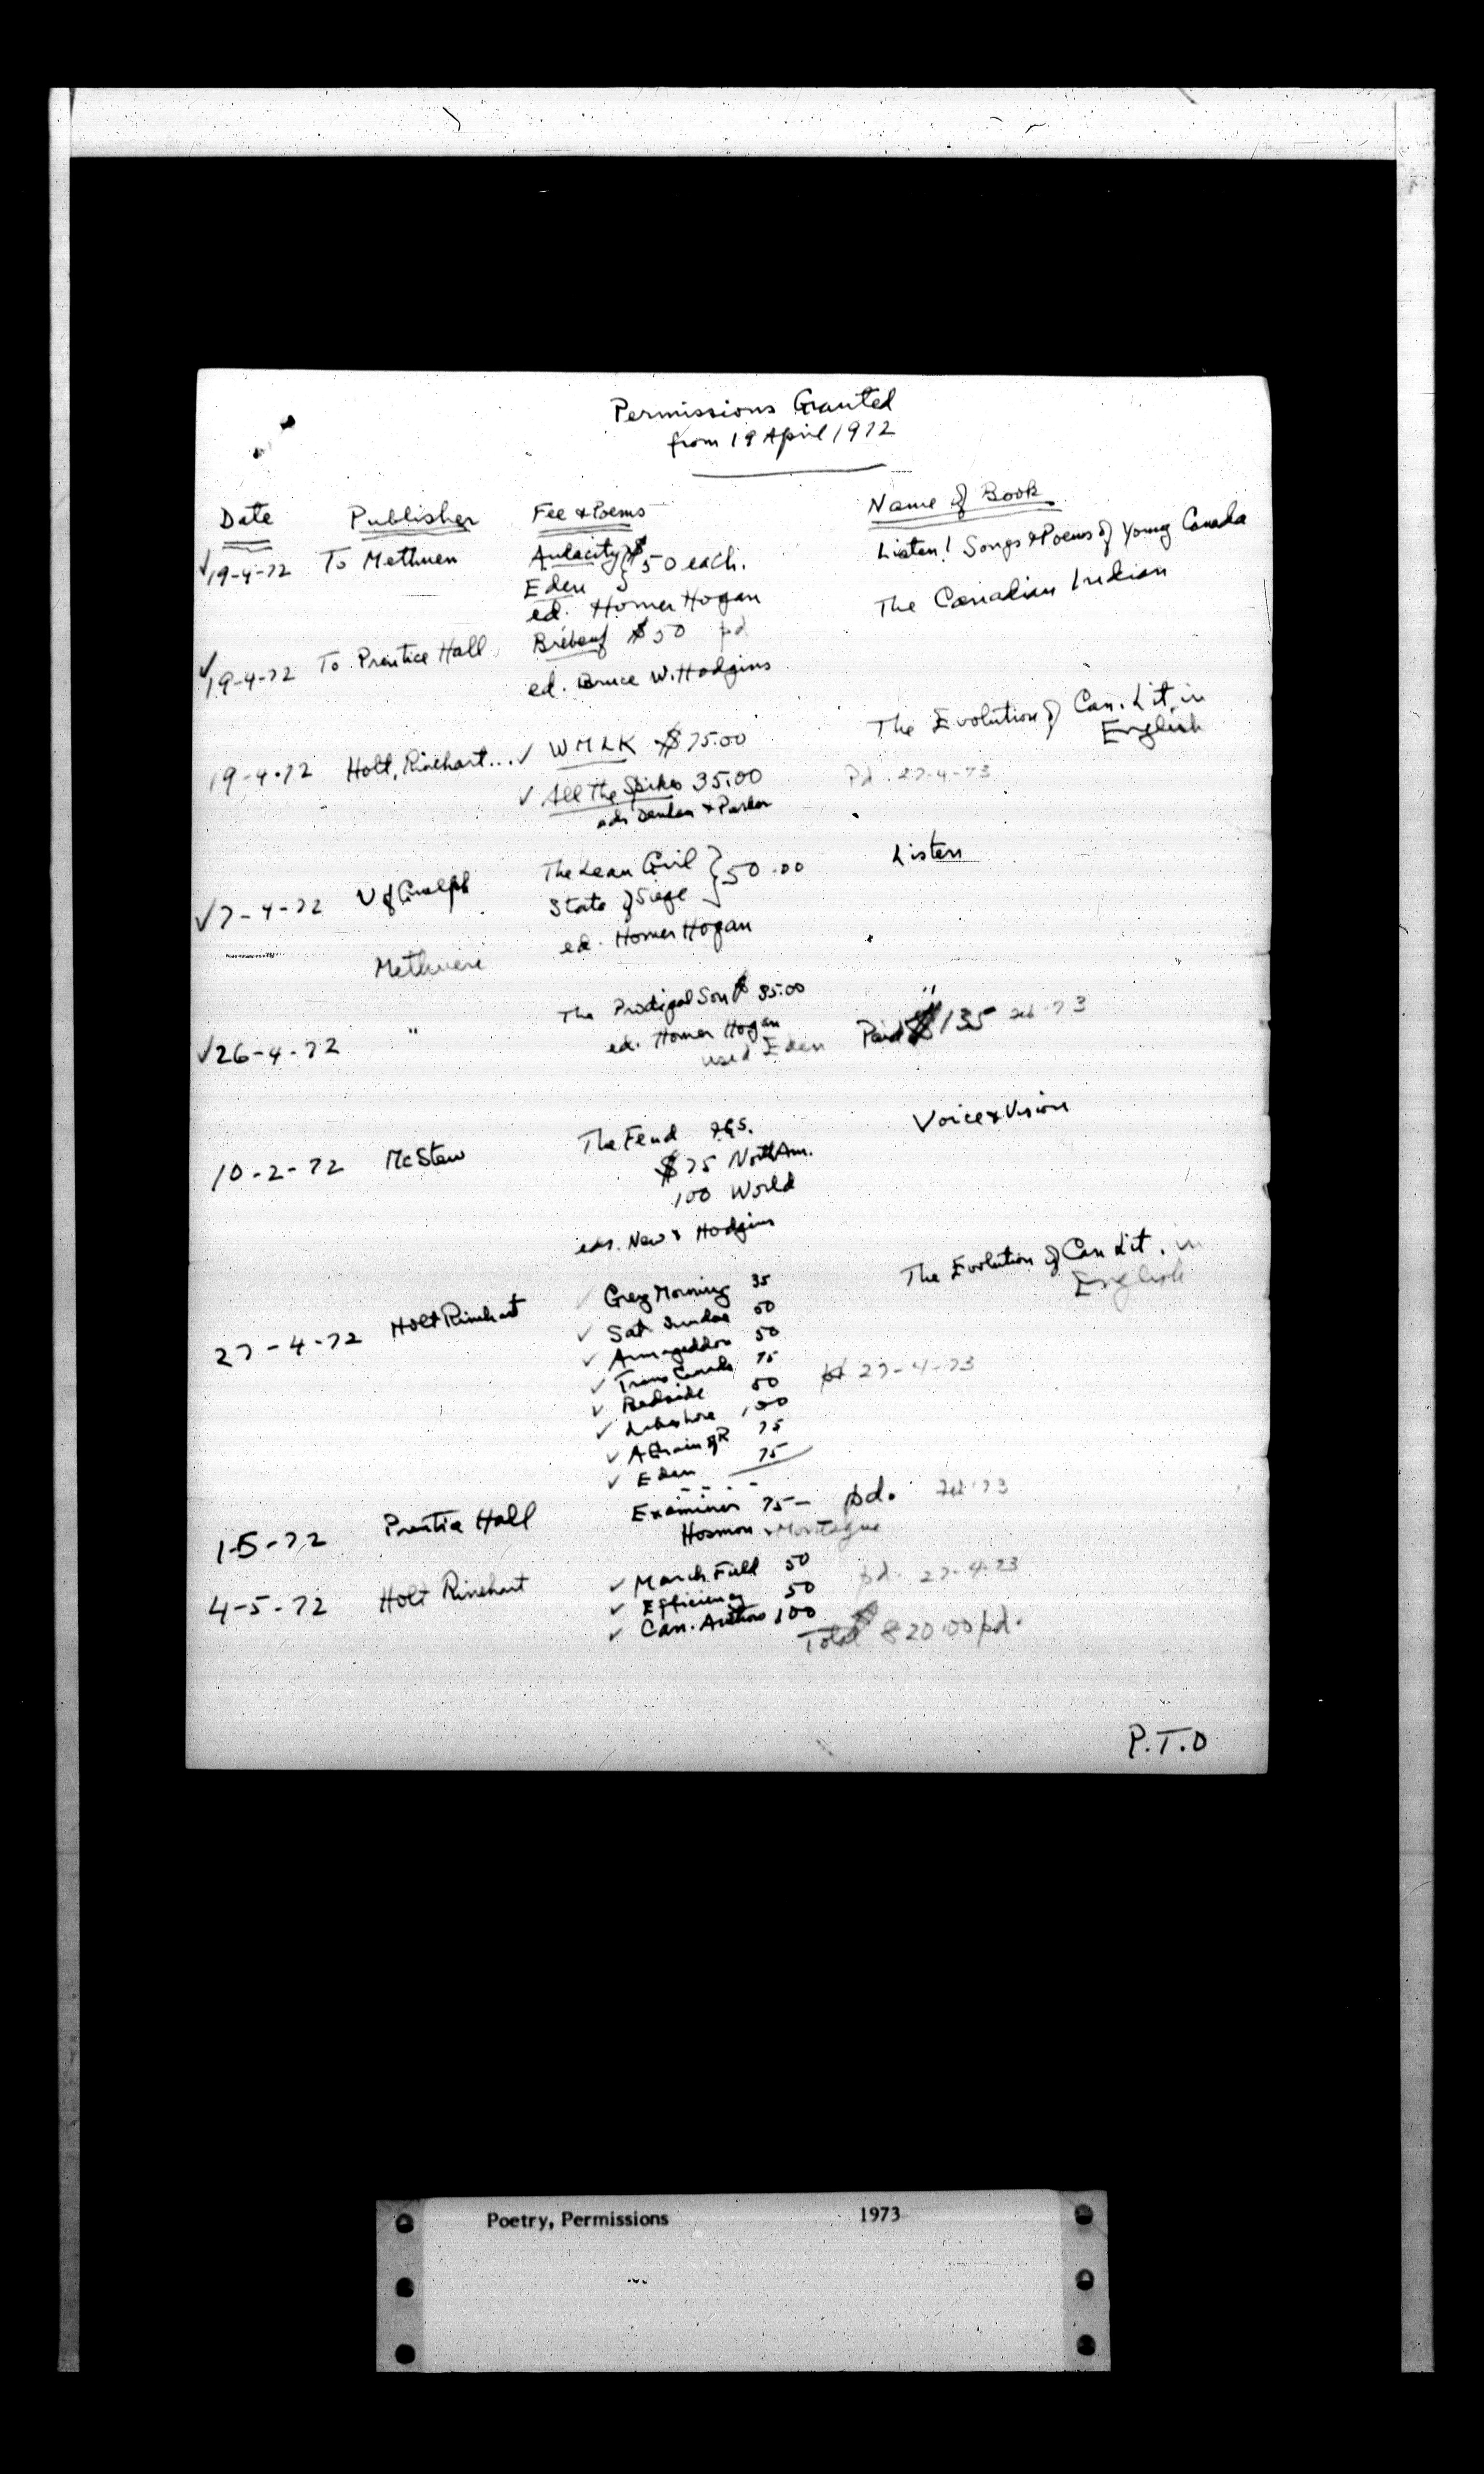 Permissions Granted
from 19 April 1972
Date Publisher Fee & Poems Name of Book
✓19-4-72 To Methuen Audacity } $50 each. Listen! Songs & Poems of Young Canada
Eden
ed. Homer Hogan
✓19-4-72 To Prentice Hall Brébeuf $50 pd The Canadian Indian
ed. Bruce W. Hodgins
19-4-72 Holt, Rinehart... ✓ WMLK $75.00 The Evolution of Can. Lit. in
English
✓ All the Spikes 35.00 Pd. 27-4-73
eds &
✓7-4-72 U of Guelph The Lean Girl } 50.00 Listen
State of Siege
ed. Homer Hogan
Methuen
✓26-4-72 " The Prodigal Son $ 35.00 "
ed. Homer Hogan
used Eden Paid $135 Feb. 73
10-2-72 McStew The Feud Voice & Vision
$75 North Am.
100 World
eds. New & Hodgins
27-4-72 Holt Rinehart ✓ Grey Morning 35 The Evolution of Can Lit. in
English
✓ Sat. Sundae 50
✓ Armageddon 50
✓ Trans Canada 75
✓ Bedside 50 pd 27-4-73
✓ Lakeshore 100
✓ A Grain of R 75
✓ Eden 75
1-5-72 Prentice Hall Examiner 75— pd. Feb. 73
Hosmon & Montague
4-5-72 Holt Rinehart ✓ March. Field 50 pd. 27-4-73
✓ Efficiency 50
✓ Can. Authors 100
Total $820.00 pd.
P.T.O
Poetry, Permissions 1973